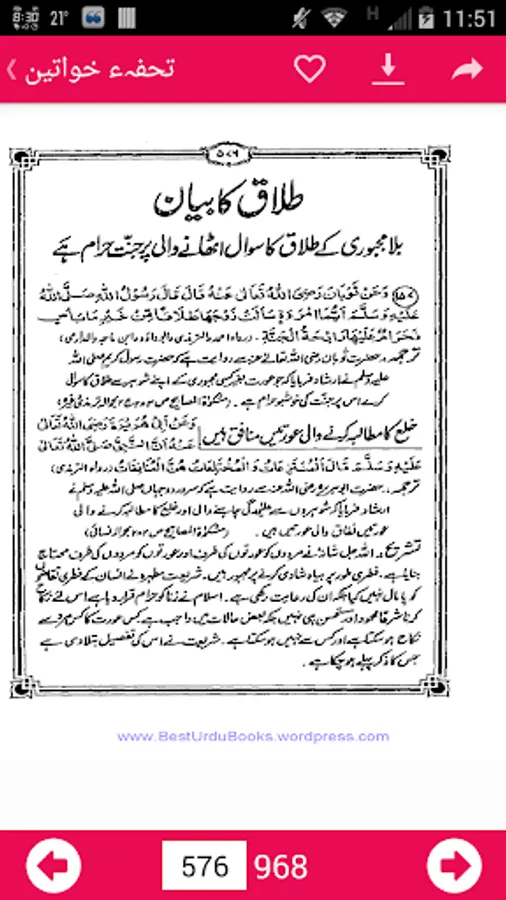 8:30 21° H 11:51
تحفہء خواتین
۵۷۶
طلاق کا بیان
بلا مجبوری کے طلاق کا سوال اٹھانے والی پر جنّت حرام ہے
وَعَنْ ثَوْبَانَ رَضِیَ اللهُ تَعَالٰی عَنْهُ قَالَ قَالَ رَسُوْلُ اللهِ صَلَّى اللهُ
عَلَيْهِ وَسَلَّمَ اَيُّمَا امْرَءَةٍ سَأَلَتْ زَوْجَهَا طَلَاقًا مِّنْ غَيْرِ مَا بَأْسٍ
فَحَرَامٌ عَلَيْهَا رَائِحَةُ الْجَنَّةِ۔ رواہ احمد والترمذی وابوداؤد وابن ماجه والدارمی
ترجمہ۔ حضرت ثوبان رضی اللہ تعالیٰ عنہ سے روایت ہے کہ حضرت رسول کریم صلی اللہ
علیہ وسلم نے ارشاد فرمایا کہ جو عورت بغیر کسی مجبوری کے اپنے شوہر سے طلاق کا سوال
کرے اس پر جنّت کی خوشبو حرام ہے۔ (مشکوٰۃ المصابیح ص
خلع کا مطالبہ کرنے والی عورتیں منافق ہیں
وَعَنْ اَبِیْ هُرَيْرَةَ رَضِیَ اللهُ تَعَالٰی
عَنْهُ اَنَّ النَّبِیَّ صَلَّى اللهُ تَعَالٰی
عَلَيْهِ وَسَلَّمَ قَالَ الْمُنْتَزِعَاتُ وَالْمُخْتَلِعَاتُ هُنَّ الْمُنَافِقَاتُ
ترجمہ۔ حضرت ابوہریرہ رضی اللہ عنہ سے روایت ہے کہ سرور دو جہاں صلی اللہ علیہ وسلم نے
ارشاد فرمایا کہ شوہروں سے علیٰحدگی چاہنے والی اور خلع کا مطالبہ کرنے والی
عورتیں نفاق والی عورتیں ہیں۔ (مشکوٰۃ المصابیح ص ۲۸۴ بحوالہ نسائی)
تشریح۔ اللہ جل شانہٗ نے مردوں کو عورتوں کی طرف اور عورتوں کو مردوں کی طرف محتاج
بنایا ہے۔ فطری طور پر بیاہ شادی کرنے پر مجبور ہیں۔ شریعت مطہرہ نے انسان کے فطری تقاضوں
کو پامال نہیں کیا بلکہ ان کی رعایت رکھی ہے۔ اسلام نے زنا کو حرام قرار دیا ہے اس لئے نکاح
کرنا شرعًا محمود اور مستحسن ہی نہیں بلکہ بعض حالات میں واجب ہے کس عورت کا کس مرد سے
نکاح ہو سکتا ہے اور کس سے نہیں ہو سکتا ہے۔ شریعت نے اس کی تفصیل بتلا دی ہے
جس کا ذکر پہلے ہو چکا ہے۔
www.BestUrduBooks.wordpress.com
576 968